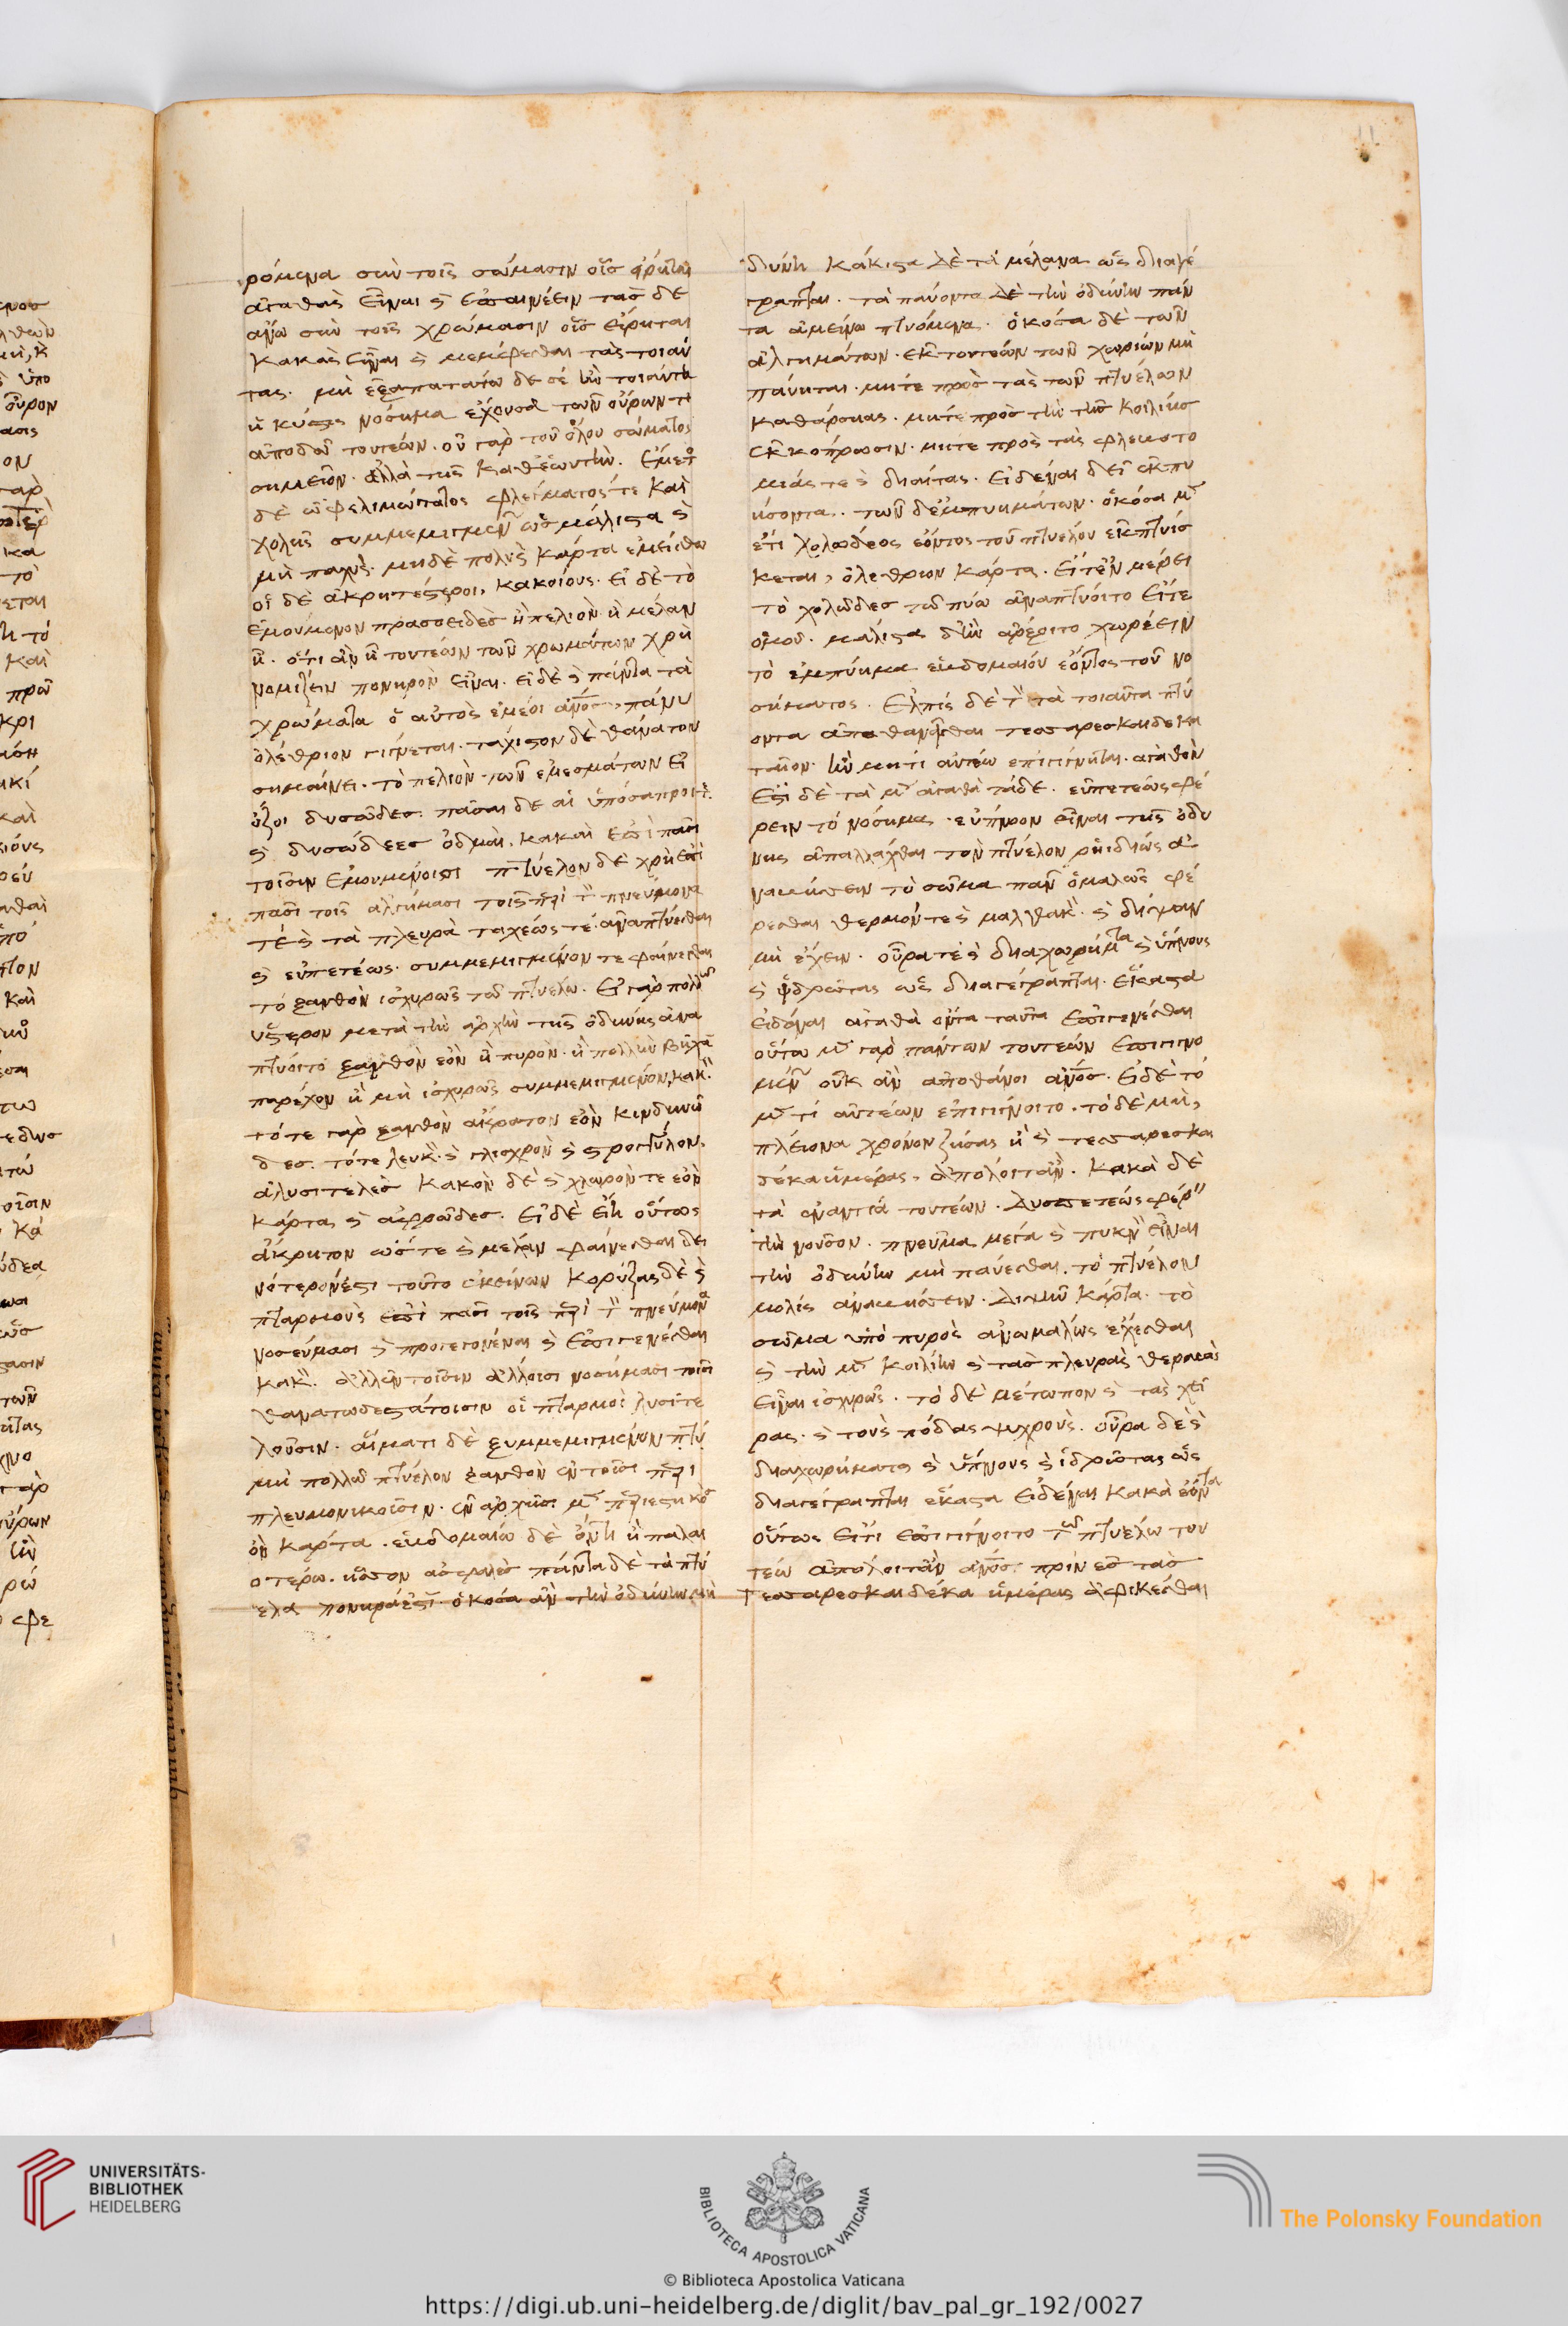 ρόμενα σὺν τοῖς σώμασιν οἷς εἴρηται
ἀγαθὰς εἶναι ϗ ἐπαινέειν τὰς δὲ
ἄνω σὺν τοῖς χρώμασιν οἷς εἴρηται
κακὰς εἶναι ϗ μέμφεσθαι τὰς τοιαύ
τας. μὴ ἐξαπατάτω δέ σε ἢν τοιαῦτα
ἡ κύστις νόσημα ἔχουσα τῶν οὔρων τι
ἀποδῶ τουτέων. οὐ γὰρ τοῦ ὅλου σώματος
σημεῖον. ἀλλὰ τῆς καθ' ἑωυτήν. ἔμετος
δὲ ὠφελιμώτατος φλέγματός τε καὶ
χολῆς συμμεμιγμένων ὡς μάλιστα ϗ
μὴ παχὺς. μηδὲ πολὺς κάρτα ἐμείσθω
οἱ δὲ ἀκρητέστεροι, κακοίους. εἰ δὲ τὸ
ἐμούμενον πρασοειδὲς ἢ πελιὸν ἢ μέλαν
ἢ. ὅτι ἂν ἢ τουτέων τῶν χρωμάτων χρὴ
νομίζειν πονηρὸν εἶναι. εἰ δὲ ϗ πάντα τὰ
χρώματα ὁ αὐτὸς ἐμέοι ἄνος, πάνυ
ὀλέθριον γίγνεται. τάχιστον δὲ θάνατον
σημαίνει. τὸ πελιὸν τῶν ἐμεσμάτων εἰ
ὄζοι δυσῶδες. πᾶσαι δὲ αἱ ὑπόσαπροι
ϗ δυσώδεες ὀδμαὶ. κακαὶ ἐπὶ πᾶσι
τοῖσιν ἐμουμένοισι πτύελον δὲ χρὴ ἐπὶ
πᾶσι τοῖς ἀλγήμασι τοῖς περὶ τὸν πνεύμονα
τὲ ϗ τὰ πλευρὰ ταχέως τὲ ἀναπτύεσθαι
ϗ εὐπετέως. συμμεμιγμένον τε φαίνεσθαι
τὸ ξανθὸν ἰσχυρῶς τῷ πτυέλω. εἰ γὰρ πολλῷ
ὕστερον μετὰ τὴν ἀρχὴν τῆς ὀδύνης ἀνα
πτύοιτο ξανθὸν ἐὸν ἢ πυρὸν. ἢ πολλὴν βῆχα
παρέχον ἢ μὴ ἰσχυρῶς συμμεμιγμένον, κακ
τό τε γὰρ ξανθὸν ἄκρατον ἐὸν κινδυνῶ
δες. τό τε λευκὸν ϗ γλίσχρον ϗ στρογγύλον.
ἀλυσιτελὲς κακὸν δὲ ϗ χλωρὸν τε ἐὸν
κάρτα, ϗ ἀφρῶδες. εἰ δὲ εἴη οὕτως
ἄκρητον ὥστε ϗ μέλαν φαίνεσθαι δει
νότερον ἐστι τοῦτο ἐκείνων κορύζας δὲ ϗ
πταρμοὺς ἐπὶ πᾶσι τοῖς περὶ τὸν πνεύμονα
νοσεύμασι ϗ προγεγονέναι ϗ ἐπιγενέσθαι
κακὸν. ἀλλ' ἐν τοῖσιν ἄλλοισι νοσήμασι τοῖσι
θανατωδεστάτοισιν οἱ πταρμοὶ λυσιτε
λοῦσιν. αἵματι δὲ ξυμμεμιγμένον πτύ
μὴ πολλῶ πτύελον ξανθὸν ἐν τοῖσι περι
πλευμονικοῖσιν. ἐν ἀρχῆσι μὲν περιεστηκὸς
ὂν κάρτα. ἑβδομαίω δὲ ὄντι ἢ παλαι
οτέρω. ἧσσον ἀσφαλὲς πάντα δὲ τὰ πτύ
ελα πονηρά ἐστι. ὁκόσα ἂν τὴν ὀδύνην μὴ
δύνη κάκιστα δὲ τὰ μέλανα ὡς διαγέ
γραπται. τὰ παύοντα δὲ τὴν ὀδύνην πάν
τα ἀμείνω πτυόμενα. ὁκόσα δὲ τῶν
ἀλγημάτων. ἐκ τουτέων τῶν χωρίων μὴ
παύηται. μήτε πρὸς τὰς τῶν πτυέλων
καθάρσιας. μήτε πρὸς τὴν τῆς κοιλίης
ἐκκόπρωσιν. μήτε πρὸς τὰς φλεβοτο
μιάς τε ϗ διαίτας. εἰδέναι δεῖ ἐκπυ
ήσοντα. τῶν δ' ἐμπυημάτων. ὁκόσα μὲν
ἔτι χολώδεος ἐόντος τοῦ πτυέλου ἐκπυίσ
κεται, ὀλέθριον κάρτα. εἴτ' ἐν μέρει
τὸ χολῶδες τῷ πύω ἀναπτύοιτο εἴτε
ὁμοῦ. μάλιστα δ' ἢν ἄρξοιτο χωρέειν
τὸ ἐμπύημα ἑβδομαίου ἐόντος τοῦ νο
σήματος. ἐλπὶς δὲ τὸν τὰ τοιαῦτα πτύ
οντα ἀποθανεῖσθαι τεσσαρεσκαιδεκα
ταῖον. ἢν μή τι αὐτέω ἐπιγίνηται. ἀγαθὸν
ἔστι δὲ τὰ μὲν ἀγαθὰ τάδε. εὐπετέως φέ
ρειν τὸ νόσημα. εὔπνοον εἶναι τῆς ὀδύ
νης ἀπαλλάχθαι τὸν πτύελον ῥηϊδίως ἀ
ναβήσσειν τὸ σῶμα πᾶν ὁμαλῶς φέ
ρεσθαι θερμόν τε ϗ μαλθακὸν. ϗ δίψαν
μὴ ἔχειν. οὖρά τε ϗ διαχωρήματα ϗ ὕπνους
ϗ ἱδρῶτας ὡς διαγέγραπται. ἕκαστα
εἰδέναι ἀγαθὰ ὄντα ταῦτα ἐπιγενέσθαι
οὕτω μὲν γὰρ πάντων τουτέων ἐπιγινο
μένων οὐκ ἂν ἀποθάνοι ἄνος. εἰ δὲ τὸ
μέν τι αὐτέων ἐπιγίνοιτο. τὸ δὲ μὴ,
πλείονα χρόνον ζήσας ἢ ϗ τεσσαρεσκαι
δέκα ἡμέρας, ἀπόλοιτ' ἂν. κακὰ δὲ
τὰ ἐναντία τουτέων. δυσπετέως φέρειν
τὴν νοῦσον. πνεῦμα μέγα ϗ πυκνὸν εἶναι
τὴν ὀδύνην μὴ παύεσθαι. τὸ πτύελον
μόλις ἀναβήσσειν. διψῆν κάρτα. τὸ
σῶμα ὑπὸ πυρὸς ἀνωμαλέως ἔχεσθαι
ϗ τὴν μὲν κοιλίην ϗ τὰς πλευρὰς θερμὰς
εἶναι ἰσχυρῶς. τὸ δὲ μέτωπον ϗ τὰς χεῖ
ρας. ϗ τοὺς πόδας ψυχροὺς. οὖρα δὲ ϗ
διαχωρήματα ϗ ὕπνους ϗ ἱδρῶτας ὡς
διαγέγραπται ἕκαστα εἰδέναι κακὰ ἐόντα
οὕτως εἴ τι ἐπιγίνοιτο τῷ πτυέλω του
τέω ἀπόλοιτ' ἂν ἄνος. πρὶν ἐς τὰς
τεσσαρεσκαιδέκα ἡμέρας ἀφικέσθαι
UNIVERSITÄTS-
BIBLIOTHEK
HEIDELBERG
BIBLIOTECA APOSTOLICA VATICANA
The Polonsky Foundation
© Biblioteca Apostolica Vaticana
https://digi.ub.uni-heidelberg.de/diglit/bav_pal_gr_192/0027